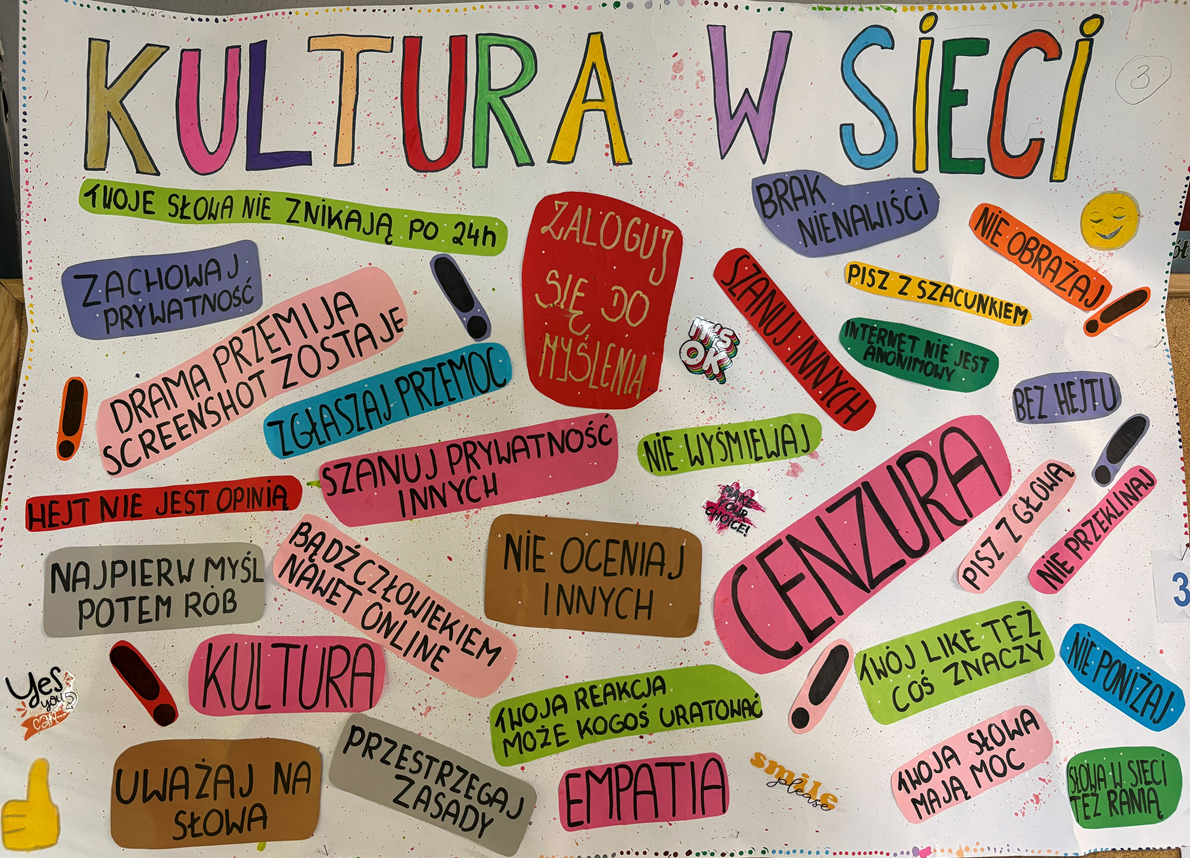 KULTURA W SIECI
3
TWOJE SŁOWA NIE ZNIKAJĄ PO 24h
ZALOGUJ
SIĘ DO
MYŚLENIA
BRAK
NIENAWIŚCI
NIE OBRAŻAJ
ZACHOWAJ
PRYWATNOŚĆ
DRAMA PRZEMIJA
SCREENSHOT ZOSTAJE
SZANUJ INNYCH
PISZ Z SZACUNKIEM
INTERNET NIE JEST
ANONIMOWY
IT'S
OK
ZGŁASZAJ PRZEMOC
BEZ HEJTU
SZANUJ PRYWATNOŚĆ
INNYCH
NIE WYŚMIEWAJ
HEJT NIE JEST OPINIĄ
CENZURA
PISZ Z GŁOWĄ
NIE PRZEKLINAJ
MAKE
YOUR
CHOICE!
NAJPIERW MYŚL
POTEM RÓB
BĄDŹ CZŁOWIEKIEM
NAWET ONLINE
NIE OCENIAJ
INNYCH
3
KULTURA
TWÓJ LIKE TEŻ
COŚ ZNACZY
NIE PONIŻAJ
Yes
you
can
TWOJA REAKCJA
MOŻE KOGOŚ URATOWAĆ
UWAŻAJ NA
SŁOWA
PRZESTRZEGAJ
ZASADY
EMPATIA
smile
please
TWOJA SŁOWA
MAJĄ MOC
SŁOWA W SIECI
TEŻ RANIĄ